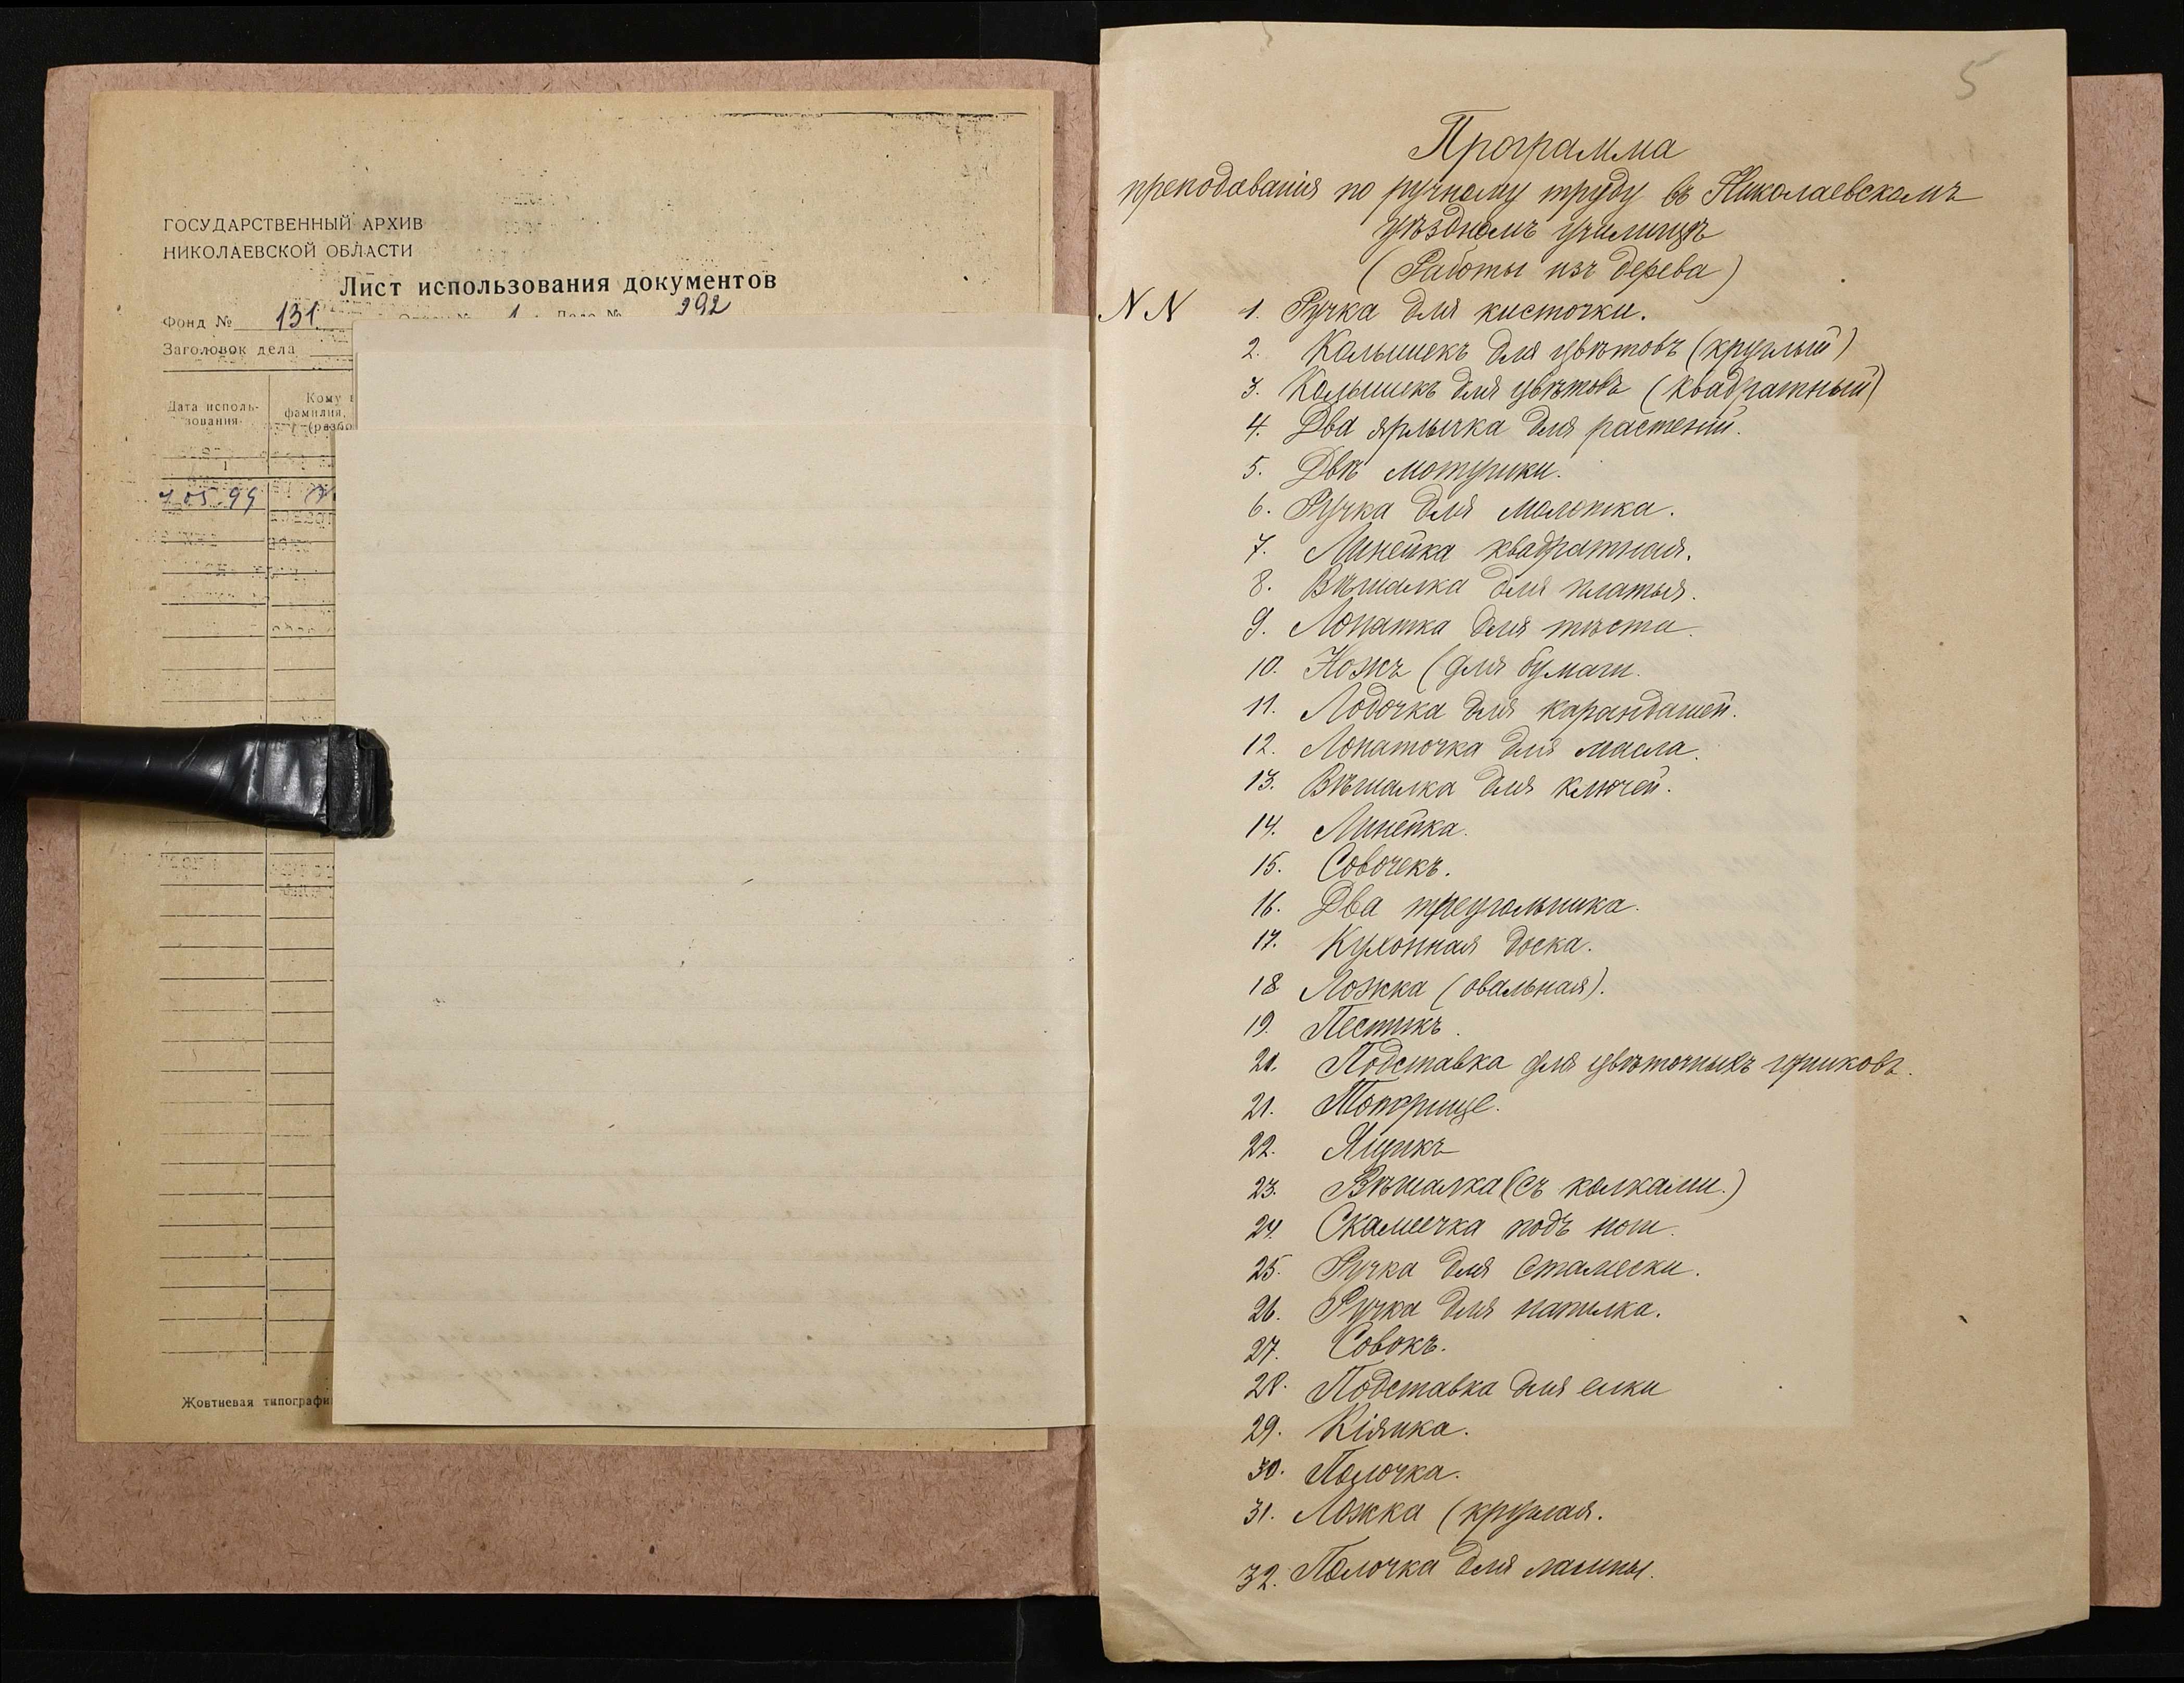 ГОСУДАРСТВЕННЫЙ АРХИВ
НИКОЛАЕВСКОЙ ОБЛАСТИ
Лист использования документов
Фонд № 131 1 Дело № 292
Заголовок дела
Дата исполь-
зования
Кому
фамилия,
1
7.05.99
Жовтневая типографи
5
Программа
преподаванія по ручному труду въ Николаевскомъ
уѣздномъ училищѣ
(Работы изъ дерева)
NN 1. Ручка для кисточки.
2. Колышекъ для цвѣтовъ (круглый)
3. Колышекъ для цвѣтовъ (квадратный)
4. Два ярлычка для растеній.
5. Двѣ мотушки.
6. Ручка для молотка.
7. Линейка квадратная.
8. Вѣшалка для платья.
9. Лопатка для тѣста.
10. Ножъ (для бумаги.
11. Лодочка для карандашей.
12. Лопаточка для масла.
13. Вѣшалка для ключей.
14. Линейка.
15. Совочекъ.
16. Два треугольника.
17. Кухонная доска.
18. Ложка (овальная).
19. Пестикъ.
20. Подставка для цвѣточныхъ горшковъ.
21. Топорище.
22. Ящикъ
23. Вѣшалка (съ колками.)
24. Скамеечка подъ ноги.
25. Ручка для стамески.
26. Ручка для напилка.
27. Совокъ.
28. Подставка для елки
29. Кіянка.
30. Полочка.
31. Ложка (круглая.
32. Полочка для лампы.